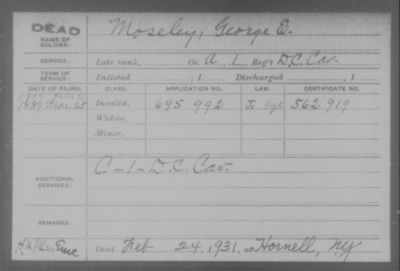 DEAD
NAME OF SOLDIER: Moseley, George E.
SERVICE: Late rank, Co. A, 1 Reg't D.C. Cav.
TERM OF SERVICE: Enlisted , 1 Discharged , 1
DATE OF FILING. CLASS. APPLICATION NO. LAW. CERTIFICATE NO.
1889 Invalid, 695 992 562 919
Widow,
Minor,
ADDITIONAL SERVICES: A-1-D.C. Cav.
REMARKS:
Died Feb 24, 1931, at Hornell, NY